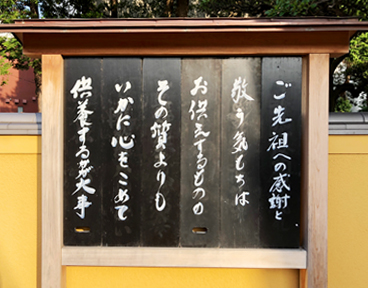 ご先祖への感謝と
敬う気もちは
お供えするものの
その質よりも
いかに心をこめて
供養するかが大事